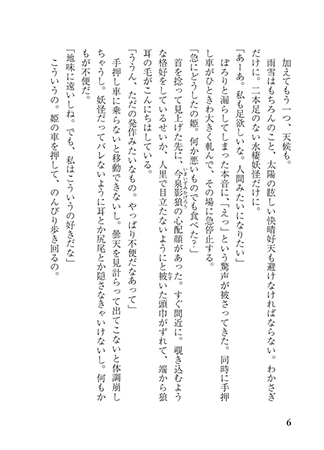 加えてもう一つ、天候も。
雨雪はもちろんのこと、太陽の眩しい快晴好天も避けなければならない。わかさぎ
だけに。二本足のない水棲妖怪だけに。
「あーあ。私も足欲しいな。人間みたいになりたい」
ぽろりと漏らしてしまった本音に、「えっ」という驚声が被さってきた。同時に手押
し車がひときわ大きく軋んで、その場に急停止する。
「急にどうしたの姫。何か悪いものでも食べた？」
首を捻って見上げた先に、今泉影狼の心配顔があった。すぐ間近に。覗き込むよう
な格好をしているせいか、人里で目立たないようにと被いた頭巾がずれて、端から狼
耳の毛がこんにちはしている。
「ううん、ただの発作みたいなもの。やっぱり不便だなあって」
手押し車に乗らないと移動できないし。曇天を見計らって出てこないと体調崩し
ちゃうし。妖怪だってバレないように耳とか尻尾とか隠さなきゃいけないし。何もか
もが不便だ。
「地味に遠いしね。でも、私はこういうの好きだな」
こういうの。姫の車を押して、のんびり歩き回るの。
6